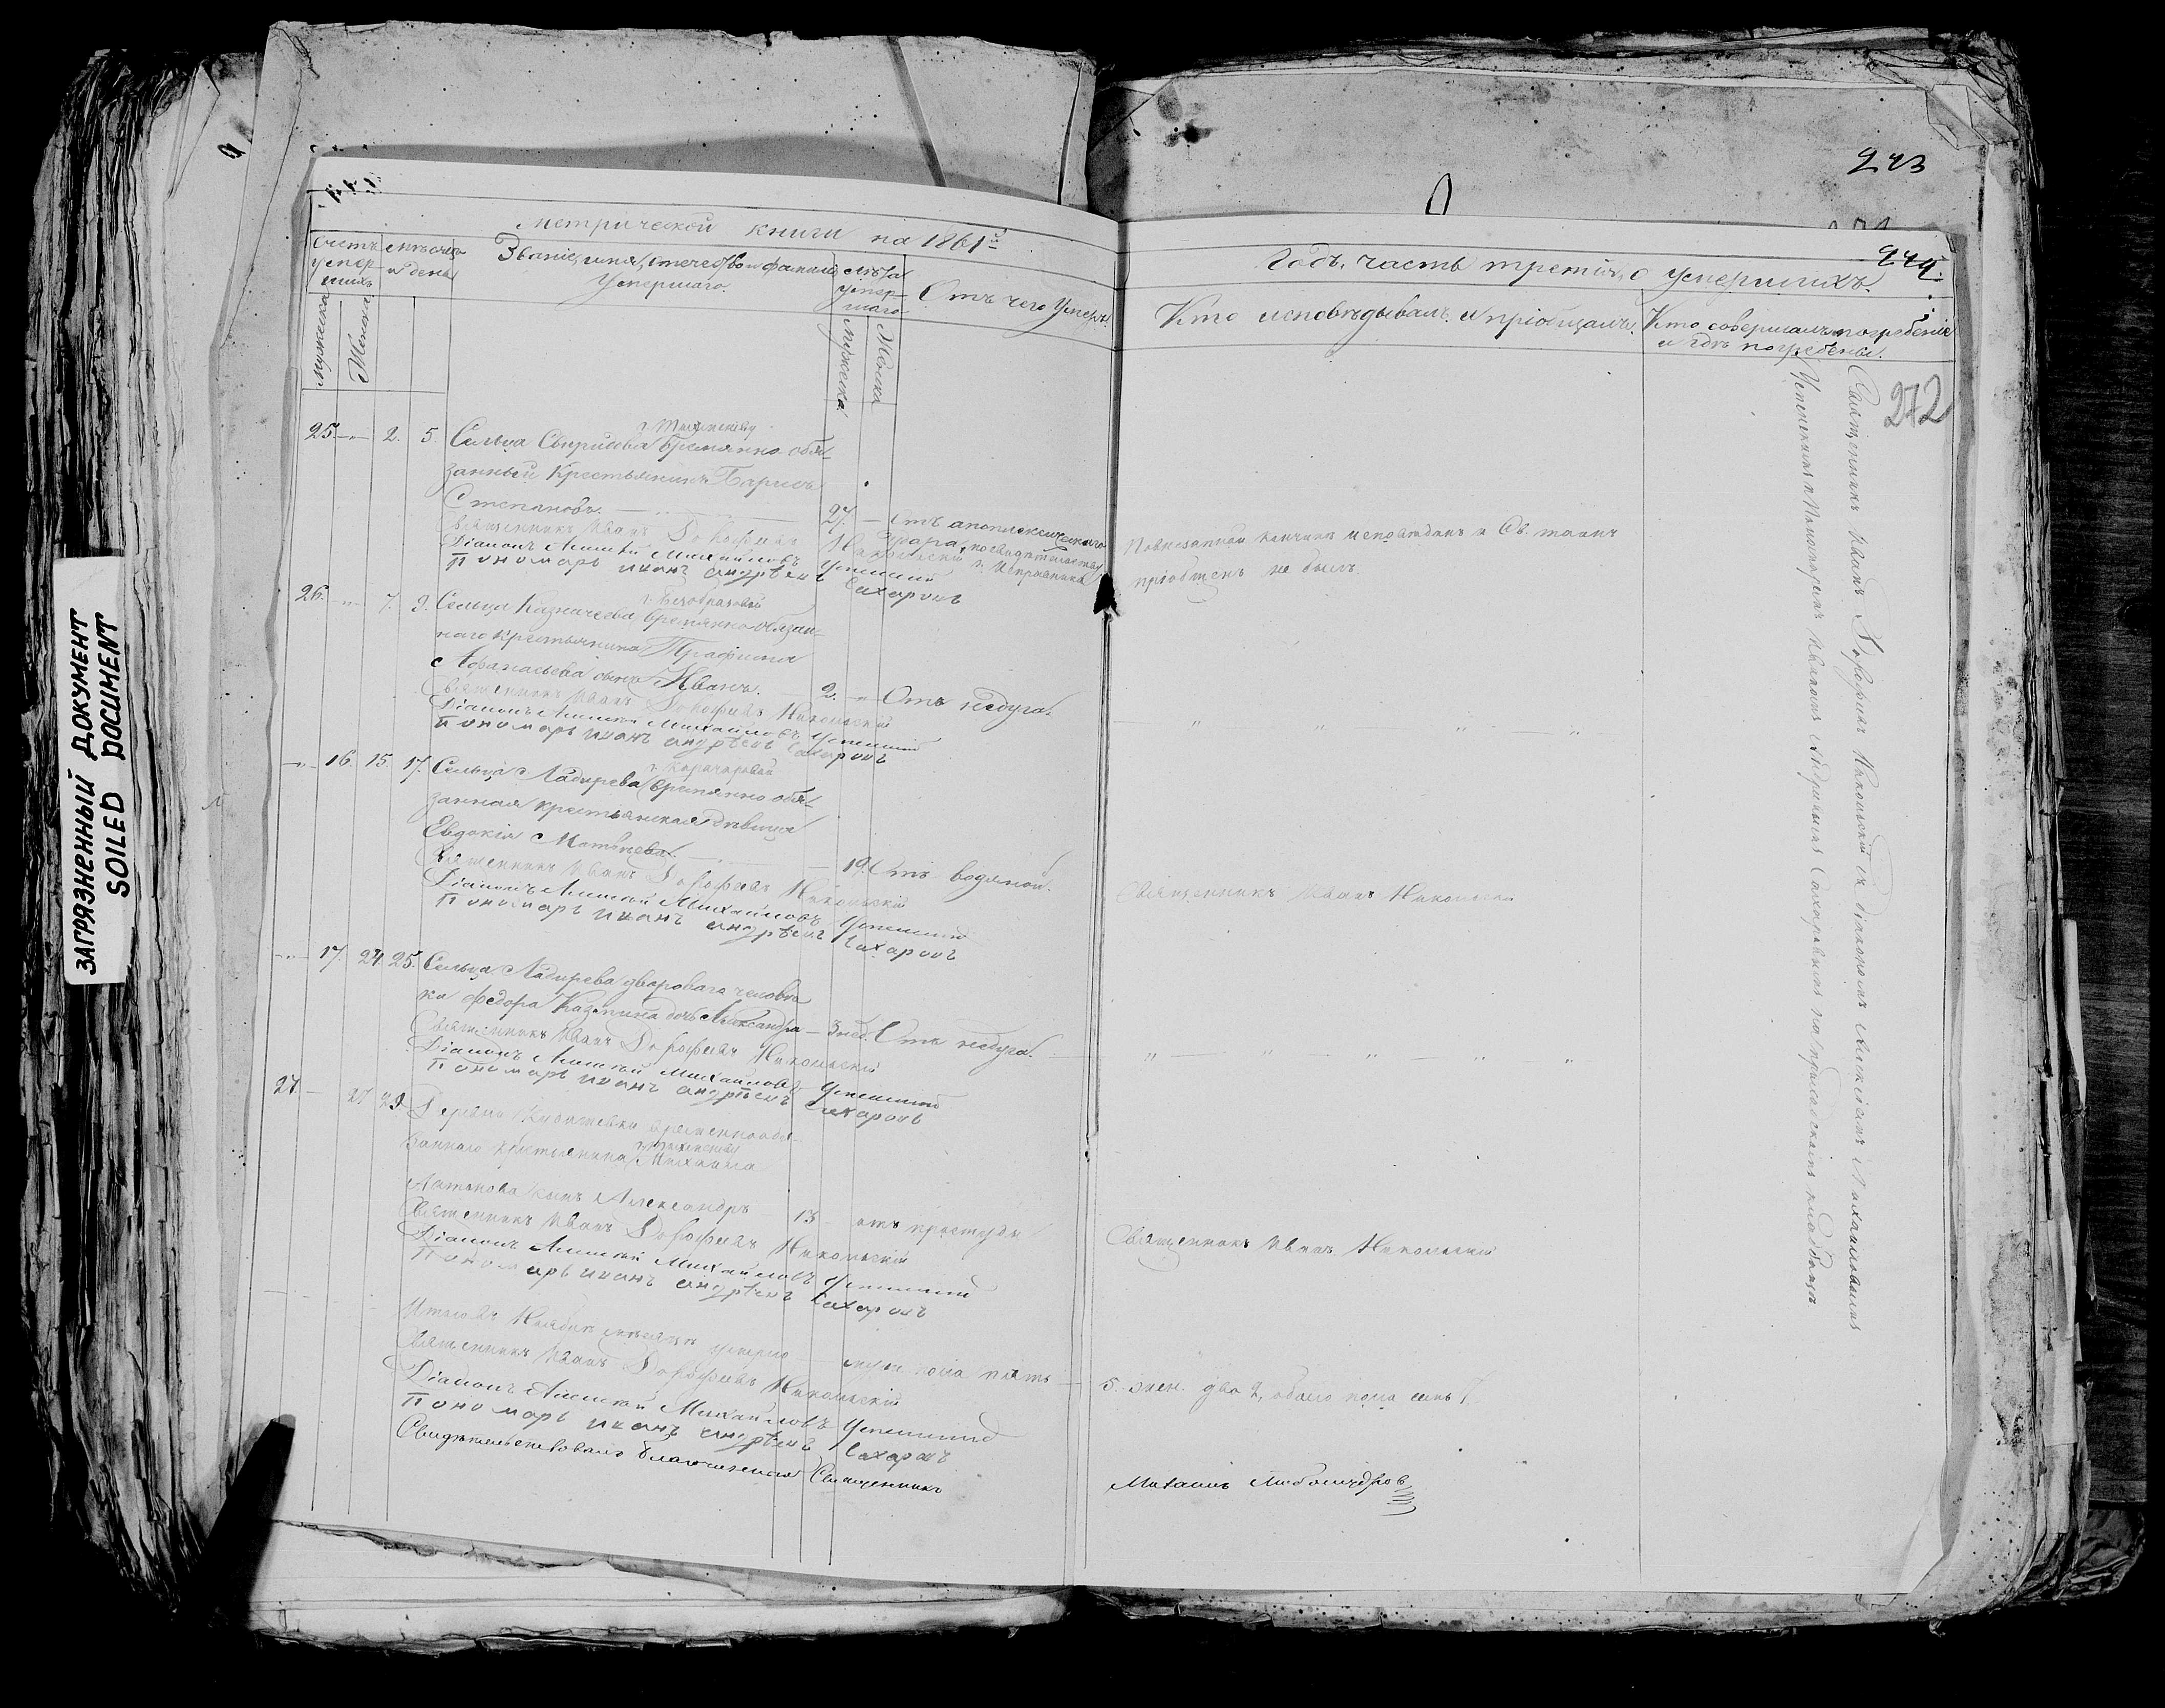 ЗАГРЯЗНЕННЫЙ ДОКУМЕНТ
SOILED DOCUMENT
метрической книги на 1861й
Счетъ умер-шихъ
Мѣсяцъ и день
Званіе, имя, отечество и фамилія Умершаго.
Лѣта умер-шаго
Отъ чего Умеръ.
Мужеска
Женска
Мужеска
Женска
25 — „ — 2. 5. Сельца временно-обя-
занный Крестьянинъ Борисъ
Степановъ. — 27. — Отъ апоплексическаго
удара, по свидѣтельству г. Исправника
Священникъ Иванъ Дороѳеевъ Никольскій
Діаконъ Алексѣй Михайловъ Успенскій
Пономарь Иванъ Андреевъ Сахаровъ
26. „ 7. 9. Сельца Казначеева временно-обязан-
наго крестьянина Трофима
Афанасьева сынъ Иванъ. — 2. — Отъ недуга.
Священникъ Иванъ Дороѳеевъ Никольскій
Діаконъ Алексѣй Михайловъ Успенскій
Пономарь Иванъ Андреевъ Сахаровъ
— „ — 16. 15. 17. Сельца Ладырева временно-обя-
занная крестьянская дѣвица
Евдокія Матвѣева. — 19. Отъ водяной.
Священникъ Иванъ Дороѳеевъ Никольскій
Діаконъ Алексѣй Михайловъ Успенскій
Пономарь Иванъ Андреевъ Сахаровъ
— „ — 17. 24. 25. Сельца Ладырева двороваго человѣ-
ка Федора Казмина дочь Александра — 3 нед. Отъ недуга.
Священникъ Иванъ Дороѳеевъ Никольскій
Діаконъ Алексѣй Михайловъ Успенскій
Пономарь Иванъ Андреевъ Сахаровъ
27. — 27 29 Деревни временнообя-
заннаго крестьянина Михаила
Антонова сынъ Александръ 13 — отъ простуды
Священникъ Иванъ Дороѳеевъ Никольскій
Діаконъ Алексѣй Михайловъ Успенскій
Пономарь Иванъ Андреевъ Сахаровъ
Итого въ Ноябрѣ мѣсяцѣ умерло — муж. пола пять
Священникъ Иванъ Дороѳеевъ Никольскій
Діаконъ Алексѣй Михайловъ Успенскій
Пономарь Иванъ Андреевъ Сахаровъ
Свидѣтельствовалъ благочинный Священникъ
273
274.
272
Годъ, часть третія, о умершихъ.
Кто исповѣдывалъ и пріобщалъ.
Кто совершалъ погребеніе и гдѣ погребены.
По внезапной кончинѣ исповѣданъ и Св. таинъ
пріобщенъ не былъ.
— „ — „ — „ — „
Священникъ Иванъ Никольскій
„ — „ — „ — „ — „
Священникъ Иванъ Никольскій
5. жен. два 2, обоего пола семь 7.
Михаилъ Любомудровъ
Священникъ Иванъ Дороѳеевъ Никольскій съ діакономъ Алексѣемъ Михайловымъ
Успенскимъ и Пономаремъ Иваномъ Андреевымъ Сахаровымъ на приходскомъ кладбищѣ